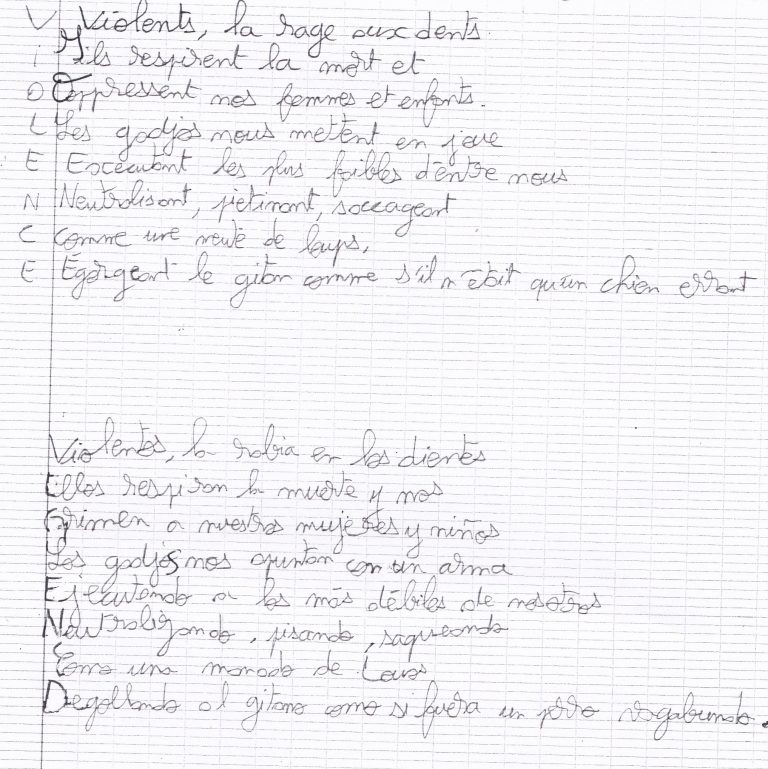 V Violents, la rage aux dents.
i Ils respirent la mort et
O Oppressent nos femmes et enfants.
L Les godjos nous mettent en joue
E Exécutant les plus faibles d'entre nous
N Neutralisant, piétinant, saccageant
C Comme une meute de loups,
E Égorgeant le gitan comme s'il n'était qu'un chien errant
Violentos, la rabia en los dientes
Ellos respiran la muerte y nos
a nuestras mujeres y niños
Los godjos nos apuntan con un arma
Ejecutando a los más débiles de nosotros
Neutralizando, pisando, saqueando
Como una manada de
Degollando al gitano como si fuera un perro vagabundo.